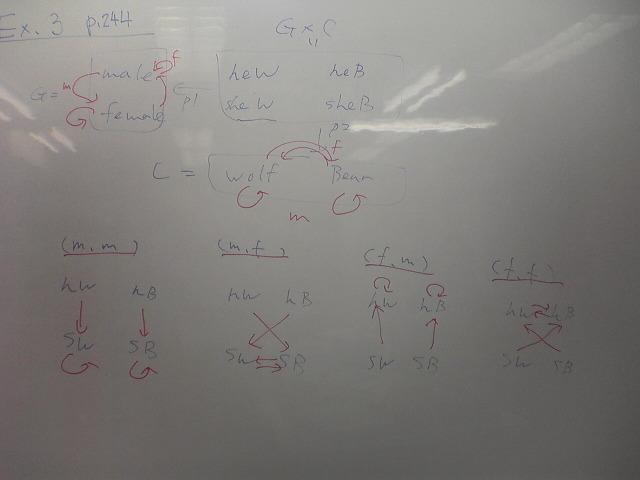 Ex. 3 p.244
G × C
G = m male f
female
p1
heW heB
sheW sheB
p2
f
C = wolf Bear
m
(m, m) (m, f) (f, m) (f, f)
hW hB hW hB hW hB hW hB
SW SB SW SB SW SB SW SB